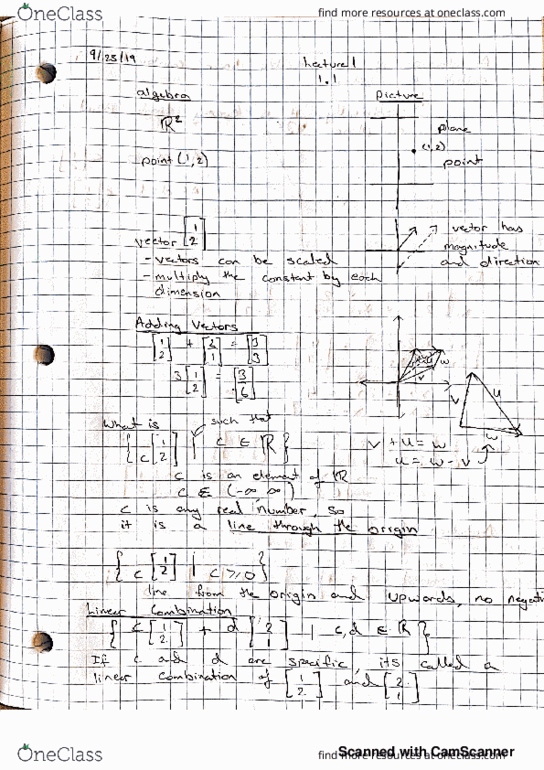 OneClass
find more resources at oneclass.com
9/25/19
Lecture 1
1.1
algebra
Picture
R²
plane
(1,2)
point (1,2)
point
vector [1 2]
vector has
magnitude
and direction
- vectors can be scaled
- multiply the constant by each
dimension
Adding Vectors
[1 2] + [2 1] = [3 3]
3 [1 2] = [3 6]
v
w
v
u
w
v + u = w
u = w - v
What is
such that
{ c [1 2] | c ∈ R }
c is an element of R
c ∈ (-∞ ∞)
c is any real number, so
it is a line through the origin
{ c [1 2] | c ≥ 0 }
line from the origin and upwards, no negati
Linear Combination
{ c [1 2] + d [2 1] | c,d ∈ R }
If c and d are specific, its called a
linear combination of [1 2] and [2 1]
OneClass
find more resources at oneclass.com
Scanned with CamScanner